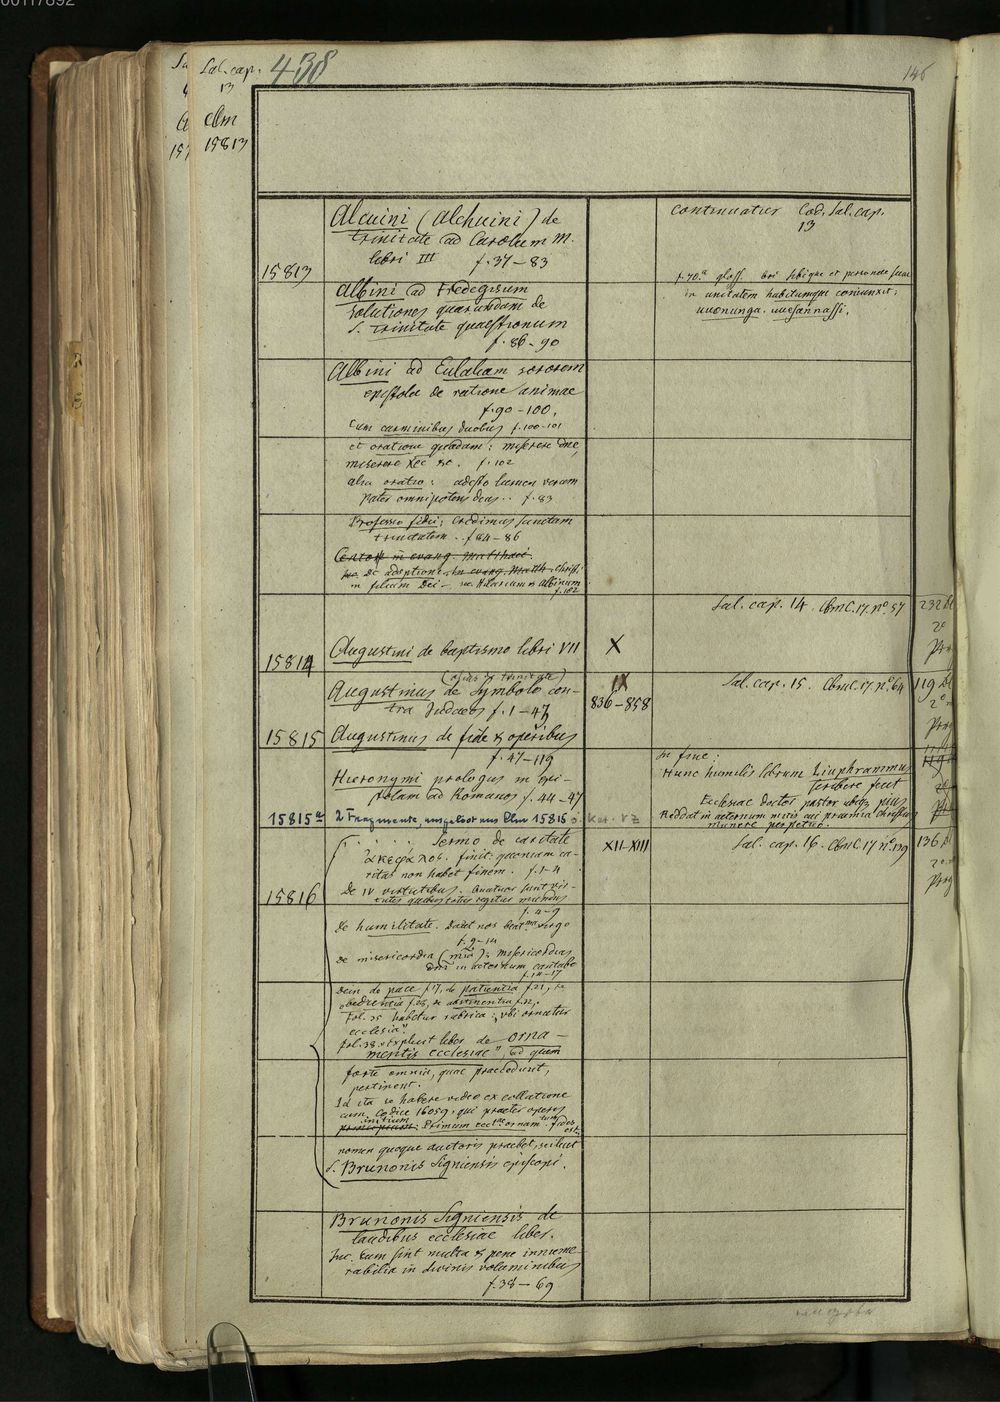 00117892
Sal. cap. 438
13
146
Clm
15813
Alcuini (Alchuini) de
trinitate ad Carolum M.
libri III f. 37–83
15813
Albini ad Fredegisum
solutiones quarundam de
S. trinitate quaestionum
f. 86–90
Albini ad Eulaliam sororem
epistola de ratione animae
f. 90–100,
cum carminibus duobus f. 100–101
et oratione quadam: miserere dne,
miserere Xre &c. f. 102
alia oratio: adesto lumen verum
Pater omnipotens deus.. f. 83
Professio fidei: Credimus sanctam
trinitatem.. f 84–86
in evang. Matthaei.
de adoptione Christi
in filium Dei – Hilarium & Albinum
f. 102
continuatur Cod. Sal. cap.
13
f. 70.a gloss.
in unitatem habitumque coniunxit:
uuonunga.
Sal. cap. 14. Cbm C. 17. no. 57
232 Bl
2o
15814
Augustini de baptismo libri VII
X
Augustinus de Symbolo con-
tra Judaeos f. 1–47
IX
836–858
Sal. cap. 15. Cbm C. 17 no. 64
119 Bl
2o
15815
Augustinus de fide & operibus
f. 47–119
Hieronymi prologus in epi-
stolam ad Romanos f. 44–47
In fine:
Hunc humilis librum Liuphrammus
scribere fecit
Ecclesiae doctor pastor ubique pius
Reddat in aeternum mitis cui praemia Christus
munere perpetuo.
15815a
2 Fragmente, ausgelöst aus Clm 15815
Sermo de caritate
ἀκεφαλος. finit: quoniam ca-
ritas non habet finem. f. 1–4
XII–XIII
Sal. cap. 16. Cbm C. 17 no. 139
136 Bl
2o
15816
de IV virtutibus. Quatuor sunt vir-
tutes quibus totus regitur mundus
f. 4–9
de humilitate. Docet nos beat. virgo
f. 9–14
de misericordia (mia): misericordias
dni in aeternum cantabo
f. 14–17
dein de pace f 17, de patientia f. 21, de
obedientia f. 28, de abstinentia f. 32,
Fol. 35 habetur rubrica: „ubi ornatur
ecclesia".
fol. 38. „Explicit liber de orna-
mentis ecclesiae", ad quem
forte omnia, quae praecedunt,
pertinent.
Id ita se habere video ex collatione
cum Codice 16059, qui praeter operis
initium: Primum eccl. ornam. fides
est.
nomen quoque auctoris praebet, scilicet
S. Brunonis Signiensis episcopi.
Brunonis Signiensis de
laudibus ecclesiae liber.
Inc. cum sint multa & pene innume-
rabilia in divinis voluminibus
f. 38–69